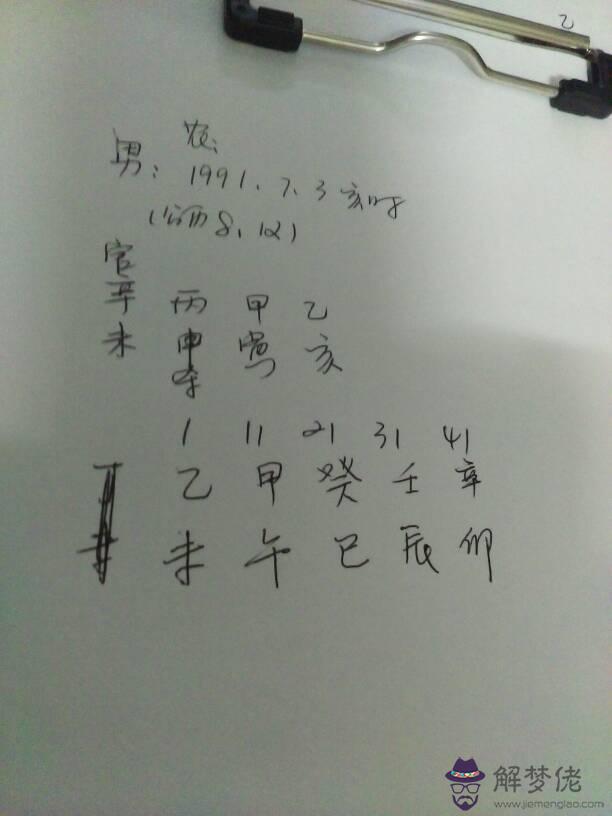 乙
农:
男: 1991.7.3 亥时
(公历 8.12)
官
辛 丙 甲 乙
未 申 寅 亥
杀
1 11 21 31 41
乙 甲 癸 壬 辛
未 午 巳 辰 卯
解梦佬
www.jiemenglao.com